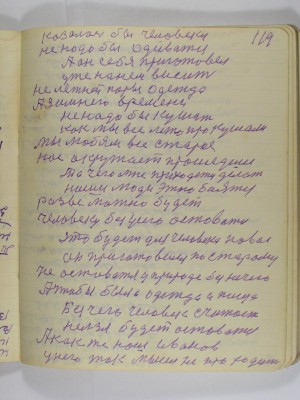 119
казалось бы человеку
не надо бы одевати
А он себя приготовел
уже на нем висит
не летней поры одежда
А зимнего времени
не надо бы кушат
как мы все лето про кушали
мы любям все старое
нас окружает прошедшие
То чего мне приходится делат
наши люди этого баятся
разве можно будет
человеку без чего оставати
Это будет для человека новае
он приготовелси по старому
не оставатя у природе без ничего
А чтобы была одежда и пища
Без чего человек считает
нелзя будет оставати
А как же наш Иванов
у него так мысел не про ходит